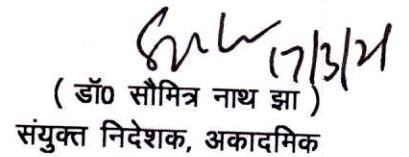 17/3/21
( डॉ0 सौमित्र नाथ झा )
संयुक्त निदेशक, अकादमिक